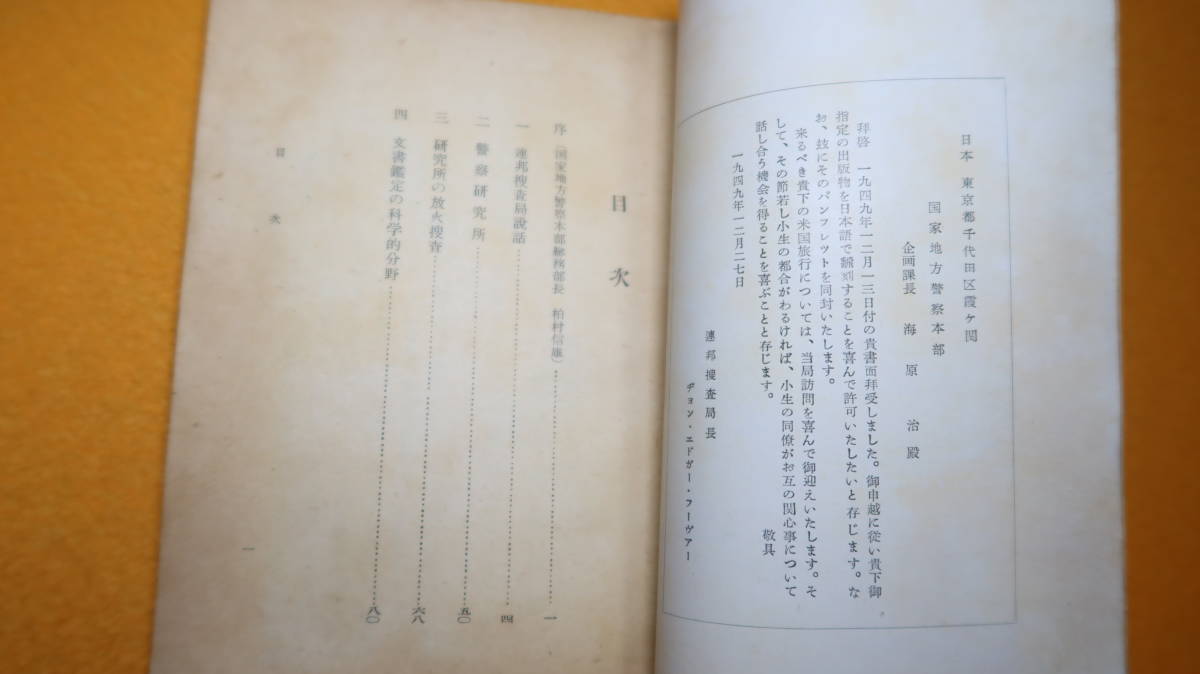 日本 東京都千代田区霞ケ関
国家地方警察本部
企画課長 海原治殿
拝啓 一九四九年一二月一三日付の貴書面拝受しました。御申越に従い貴下御
指定の出版物を日本語で飜刻することを喜んで許可いたしたいと存じます。な
お、玆にそのパンフレツトを同封いたします。
来るべき貴下の米国旅行については、当局訪問を喜んで御迎えいたします。そ
して、その節若し小生の都合がわるければ、小生の同僚がお互の関心事について
話し合う機会を得ることを喜ぶことと存じます。
敬具
一九四九年一二月二七日
連邦捜査局長
ヂョン・エドガー・フーヴアー
目次
序(国家地方警察本部総務部長 柏村信雄)……一
一 連邦捜査局説話……四
二 警察研究所……五〇
三 研究所の放火捜査……六八
四 文書鑑定の科学的分野……八〇
目次
一